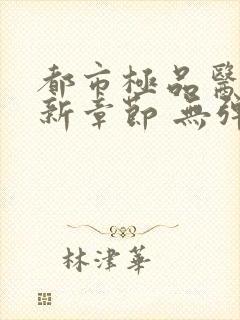 都市極品醫
新章節 無彈
林津華